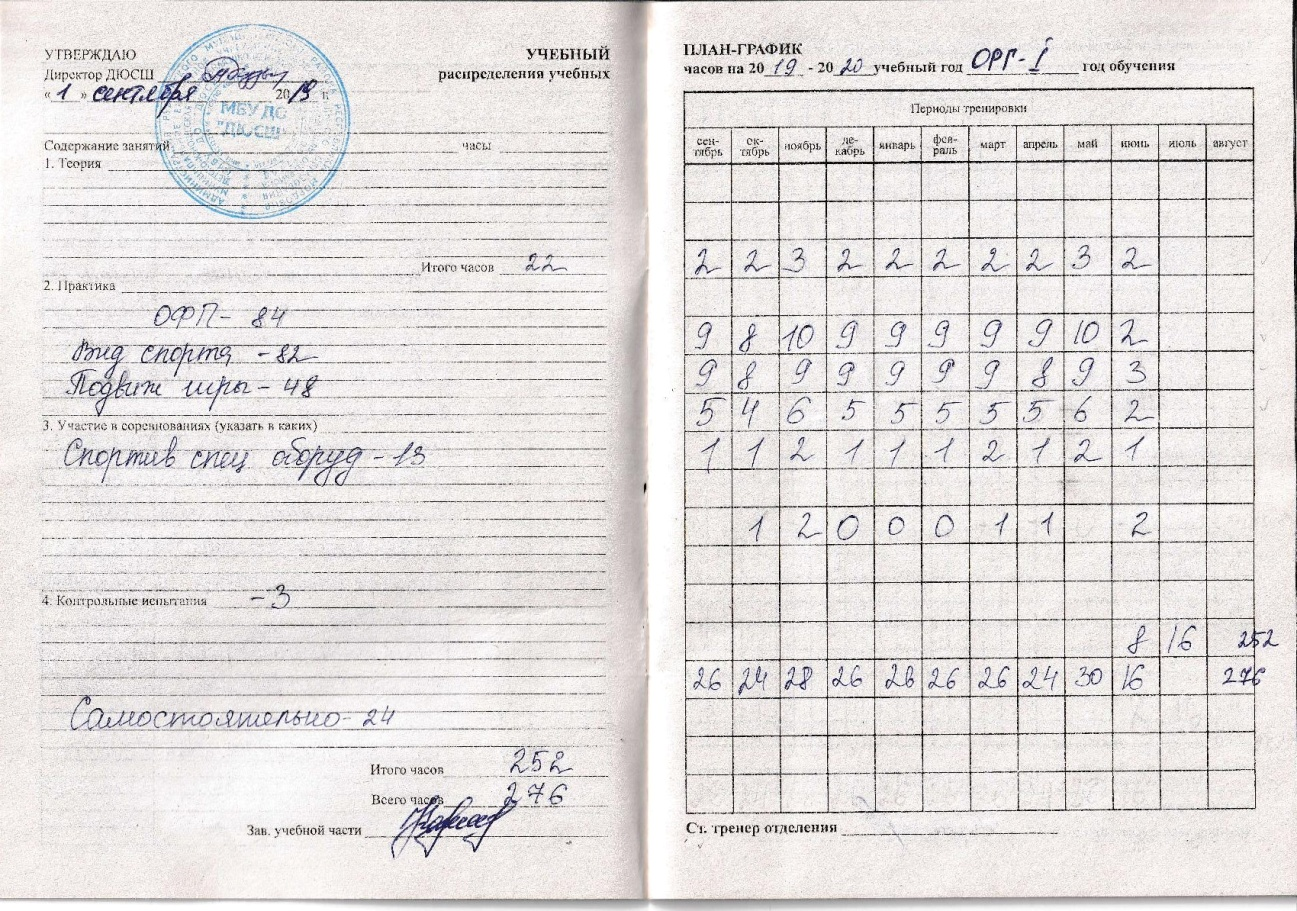 УТВЕРЖДАЮ
УЧЕБНЫЙ
Директор ДЮСШ
распределения учебных
« 1 » сентября 2019 г.
МБУ ДО
"ДЮСШ"
Содержание занятий часы
1. Теория
Итого часов 22
2. Практика
ОФП- 84
Вид спорта -82
Подвиж игры - 48
3. Участие в соревнованиях (указать в каких)
Спортив спец оборуд - 13
4. Контрольные испытания -3
Самостоятельно- 24
Итого часов 252
Всего часов 276
Зав. учебной части
ПЛАН-ГРАФИК
часов на 2019 - 2020 учебный год ОРГ-I год обучения
Периоды тренировки
сен-тябрь ок-тябрь ноябрь де-кабрь январь фев-раль март апрель май июнь июль август
2 2 3 2 2 2 2 2 3 2
9 8 10 9 9 9 9 9 10 2
9 8 9 9 9 9 9 8 9 3
5 4 6 5 5 5 5 5 6 2
1 1 2 1 1 1 2 1 2 1
1 2 0 0 0 1 1 2
8 16 252
26 24 28 26 26 26 26 24 30 16 276
Ст. тренер отделения